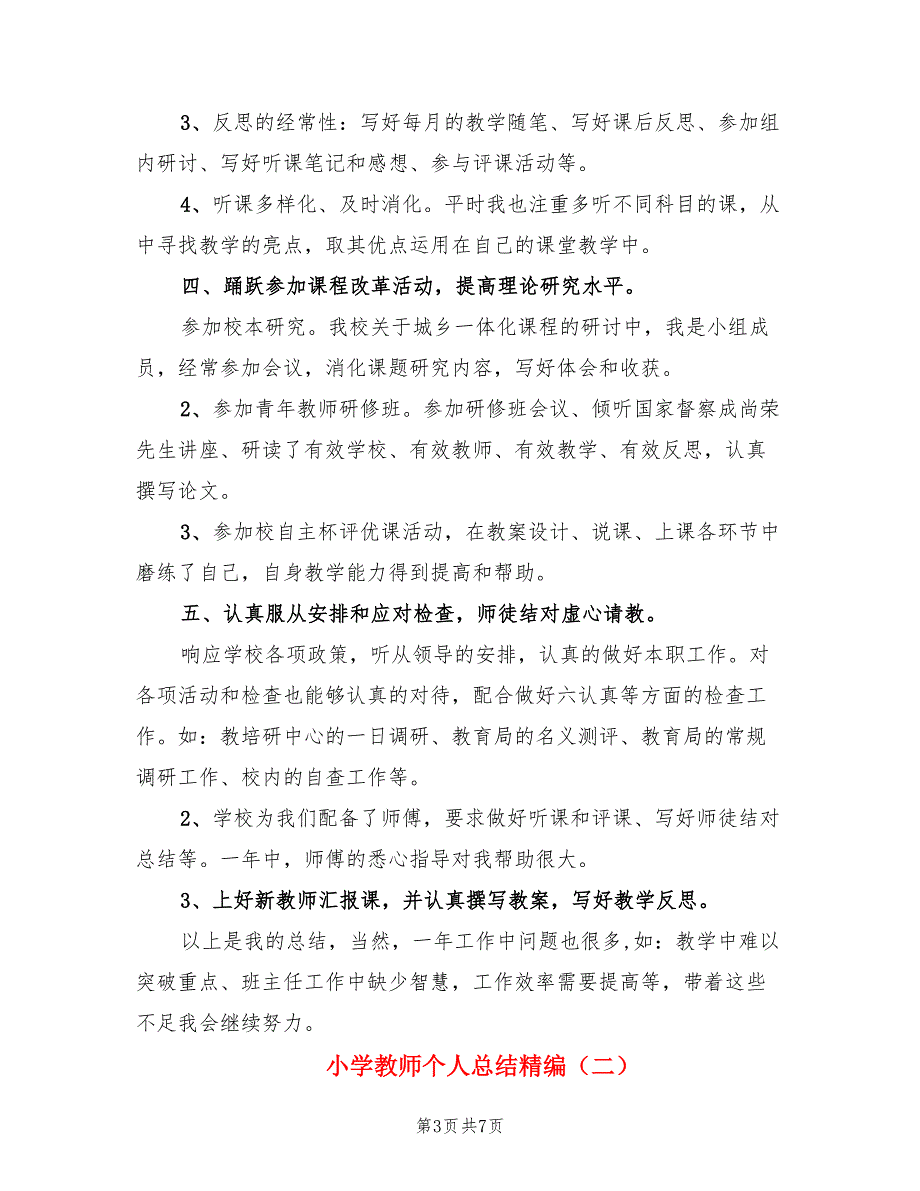 3、反思的经常性：写好每月的教学随笔、写好课后反思、参加组
内研讨、写好听课笔记和感想、参与评课活动等。
4、听课多样化、及时消化。平时我也注重多听不同科目的课，从
中寻找教学的亮点，取其优点运用在自己的课堂教学中。
四、踊跃参加课程改革活动，提高理论研究水平。
参加校本研究。我校关于城乡一体化课程的研讨中，我是小组成
员，经常参加会议，消化课题研究内容，写好体会和收获。
2、参加青年教师研修班。参加研修班会议、倾听国家督察成尚荣
先生讲座、研读了有效学校、有效教师、有效教学、有效反思，认真
撰写论文。
3、参加校自主杯评优课活动，在教案设计、说课、上课各环节中
磨练了自己，自身教学能力得到提高和帮助。
五、认真服从安排和应对检查，师徒结对虚心请教。
响应学校各项政策，听从领导的安排，认真的做好本职工作。对
各项活动和检查也能够认真的对待，配合做好六认真等方面的检查工
作。如：教培研中心的一日调研、教育局的名义测评、教育局的常规
调研工作、校内的自查工作等。
2、学校为我们配备了师傅，要求做好听课和评课、写好师徒结对
总结等。一年中，师傅的悉心指导对我帮助很大。
3、上好新教师汇报课，并认真撰写教案，写好教学反思。
以上是我的总结，当然，一年工作中问题也很多,如：教学中难以
突破重点、班主任工作中缺少智慧，工作效率需要提高等，带着这些
不足我会继续努力。
小学教师个人总结精编（二）
第3页共7页